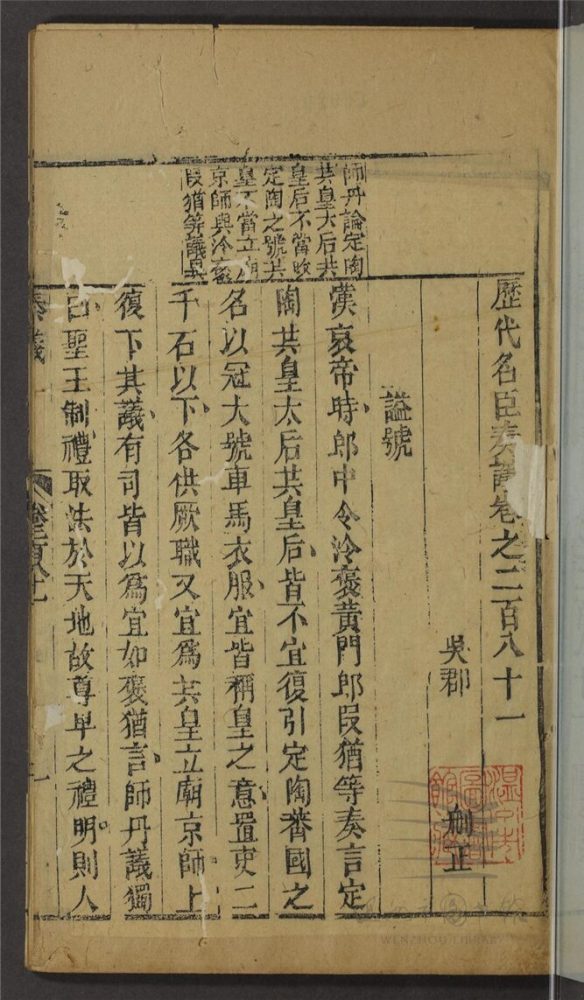 歷代名臣奏議卷之二百八十一
吳郡
刪正
諡號
師丹論定陶
共皇太后共
皇后不當改
定陶之號共
皇不當立廟
京師與泠褒
段猶等議異
漢哀帝時郎中令泠褒黃門郎段猶等奏言定
陶共皇太后共皇后皆不宜復引定陶蕃國之
名以冠大號車馬衣服宜皆稱皇之意置吏二
千石以下各供厥職又宜爲共皇立廟京師上
復下其議有司皆以爲宜如褒猶言師丹議獨
曰聖王制禮取法於天地故尊卑之禮明則人
奏議
卷二百八十一
一
WENZHOU LIBRARY